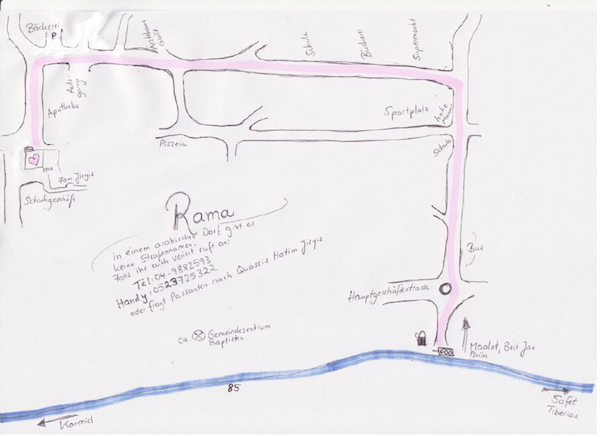 Bäckerei
P
Schule
Bücherei
Supermarkt
Apotheke
Sportplatz
hohe
Mauer
Schule
Pizzeria
Fam Jirgis
Schuhgeschäft
Rama
In einem arabischen Dorf gibt es
keine Straßennamen.
Falls ihr euch verirrt ruft an:
Tel: 04-9882593
Handy: 0523725322
oder fragt Passanten nach Quassis Hatim Jirgis
Bus
Hauptgeschäftstrasse
ca. Gemeindezentrum
Baptisten
Maalot, Beit Jan
85
Karmiel
Safet
Tiberias